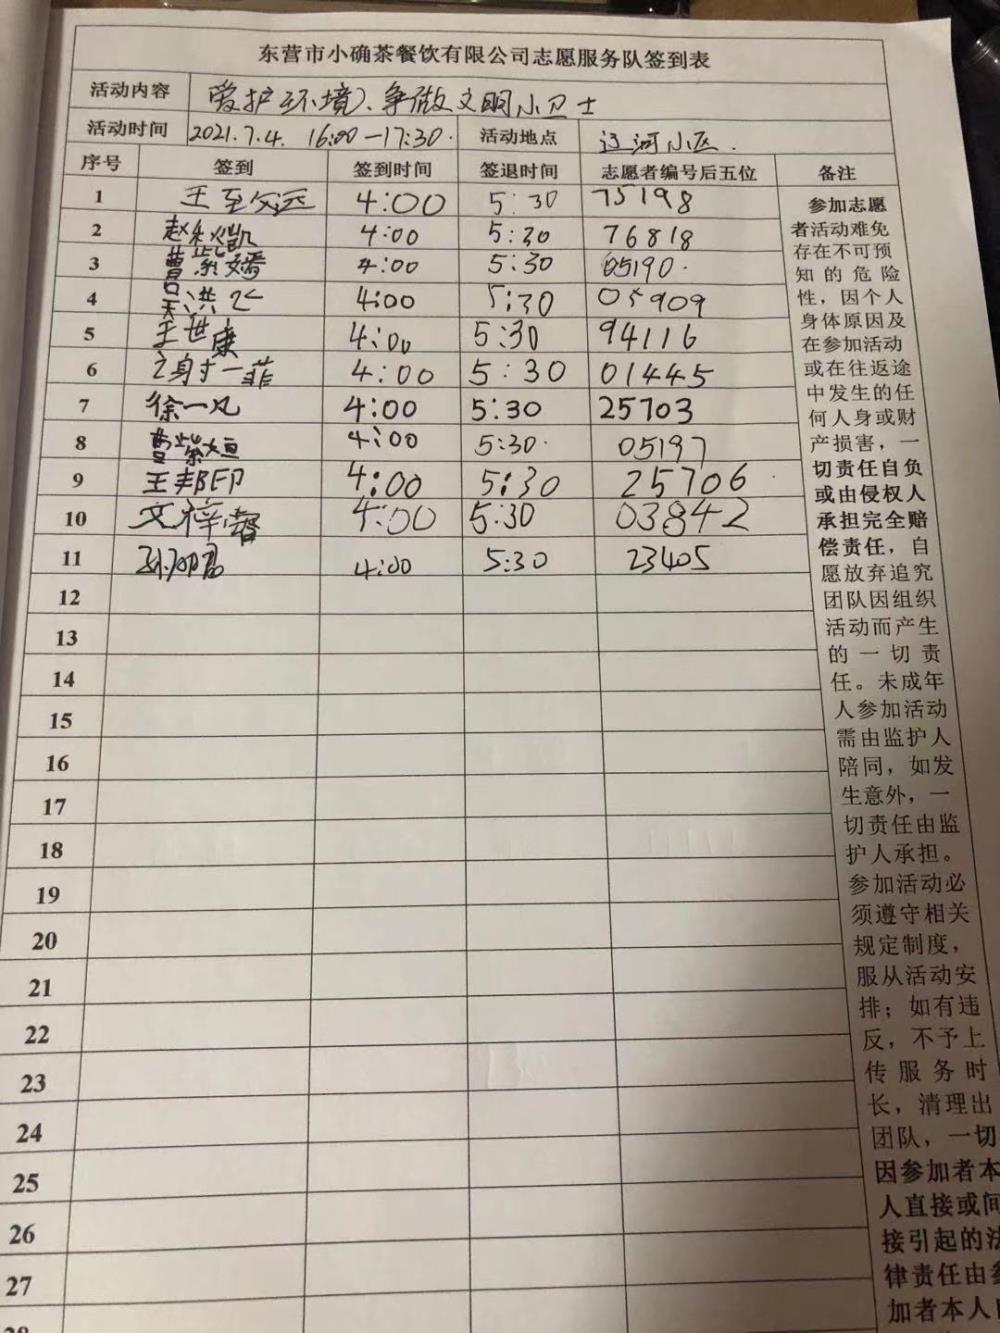 东营市小确茶餐饮有限公司志愿服务队签到表
活动内容 爱护环境、争做文明小卫士
活动时间 2021.7.4. 16:00—17:30. 活动地点 辽河小区.
序号 签到 签到时间 签退时间 志愿者编号后五位 备注
1 王至 4:00 5:30 75198
2 赵 凯 4:00 5:30 76818
3 曹紫嫣 4:00 5:30 05190.
4 洪 4:00 5:30 05909
5 王世康 4:00 5:30 94116
6 一菲 4:00 5:30 01445
7 徐一凡 4:00 5:30 25703
8 曹紫姮 4:00 5:30. 05197
9 王邦印 4:00 5:30 25706
10 文梓馨 4:00 5:30 03842
11 孙 君 4:00 5:30 23405
12
13
14
15
16
17
18
19
20
21
22
23
24
25
26
27
28
参加志愿
者活动难免
存在不可预
知的危险
性，因个人
身体原因及
在参加活动
或在往返途
中发生的任
何人身或财
产损害，一
切责任自负
或由侵权人
承担完全赔
偿责任，自
愿放弃追究
团队因组织
活动而产生
的一切责
任。未成年
人参加活动
需由监护人
陪同，如发
生意外，一
切责任由监
护人承担。
参加活动必
须遵守相关
规定制度，
服从活动安
排；如有违
反，不予上
传服务时
长，清理出
团队，一切
因参加者本
人直接或间
接引起的法
律责任由参
加者本人